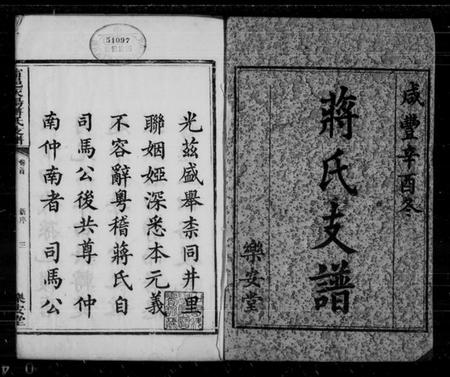 咸豐辛酉冬
蔣氏支譜
樂安堂
51097
光茲盛舉柰同井里
聯姻婭深悉本元義
不容辭粵稽蔣氏自
司馬公後共尊仲
南仲南者司馬公
卷首
新序
三
樂安堂